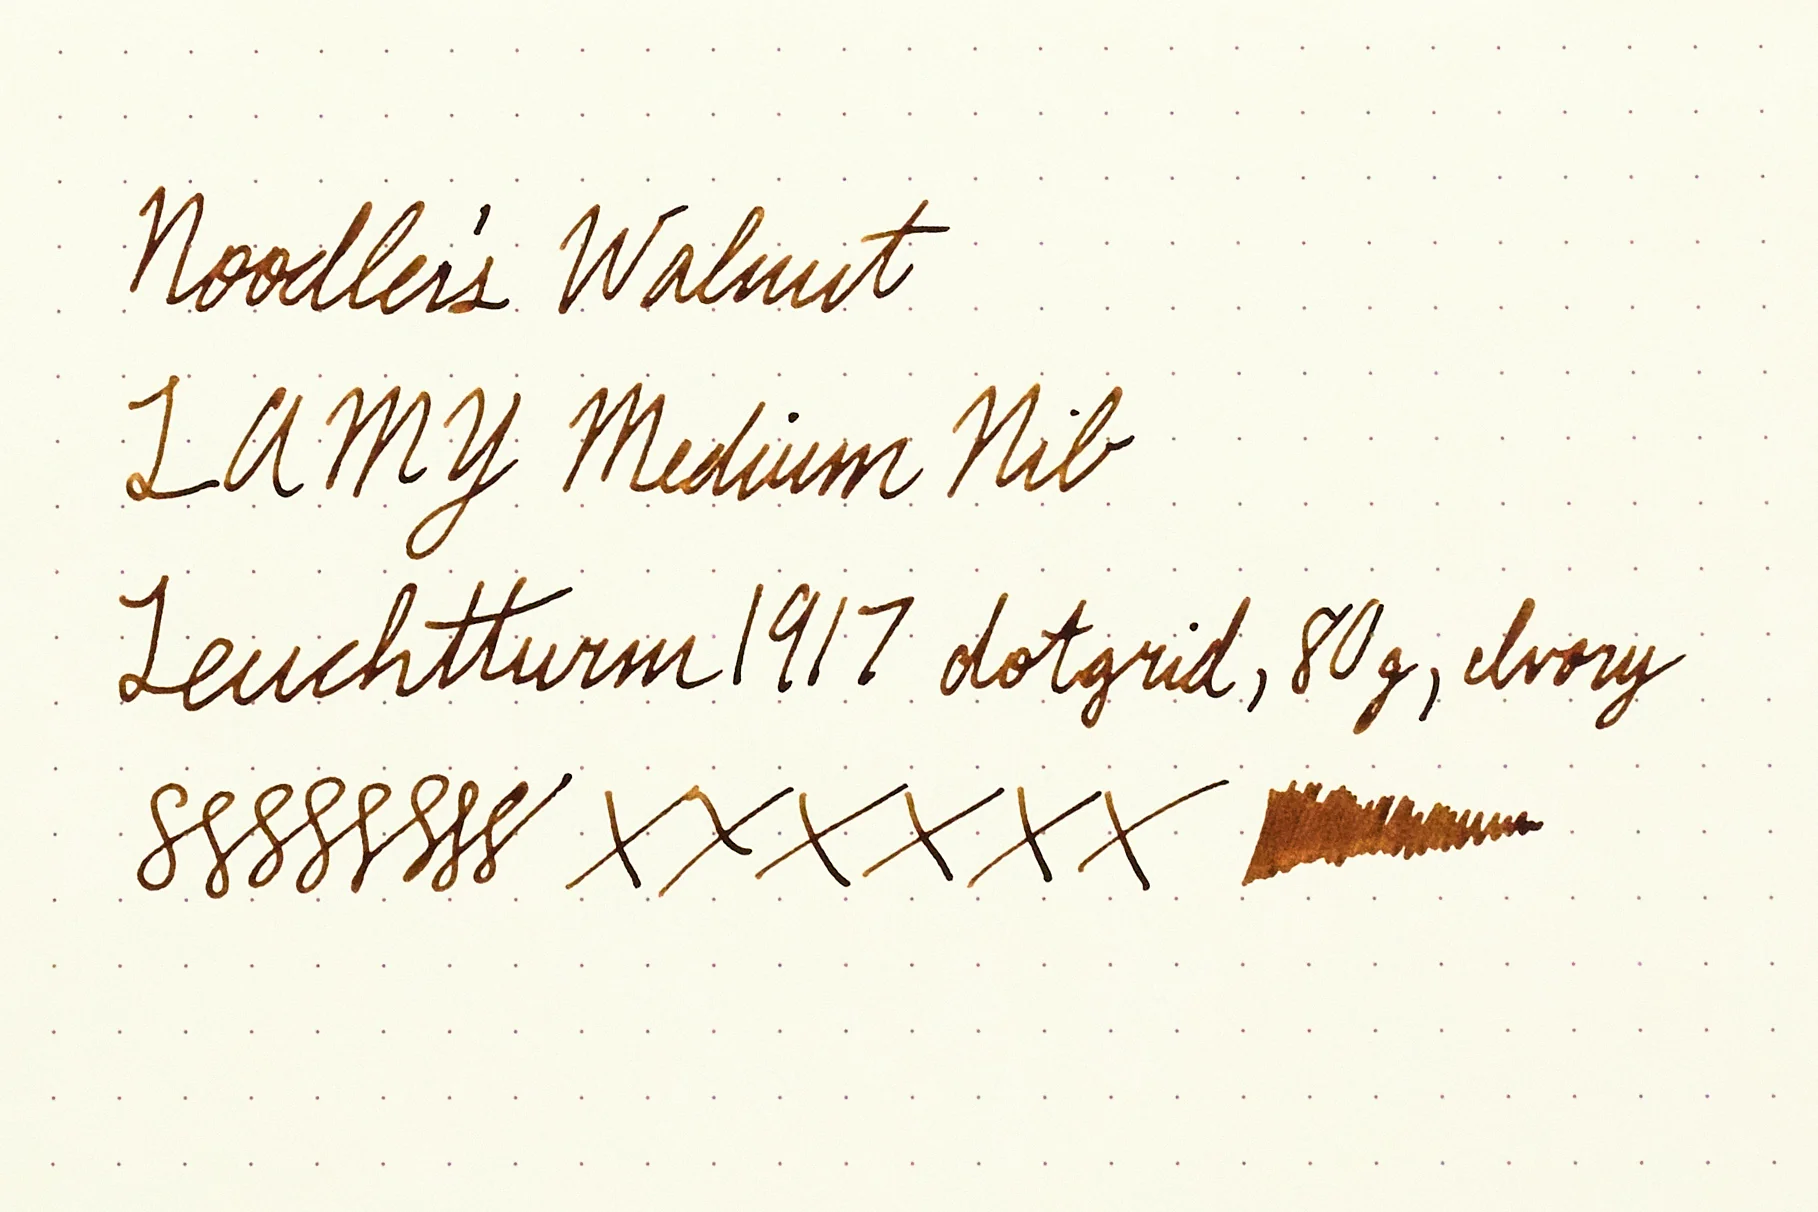 Noodler's Walnut
LAMY Medium Nib
Leuchtturm1917 dotgrid, 80g, Ivory
XXXXXX